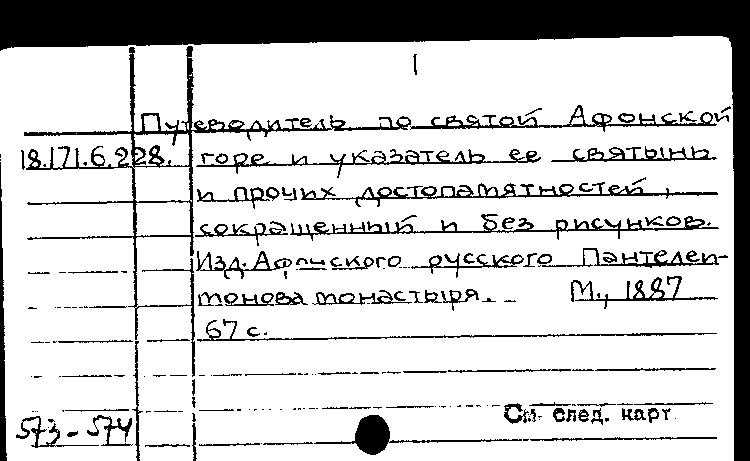 1
Путеводитель по святой Афонской
18.171.6.228. горе и указатель ее святынь
и прочих достопамятностей,
сокращенный и без рисунков.
Изд. Афонского русского Пантелеи-
монова монастыря. М., 1887
67 с.
См. след. карт
573-574